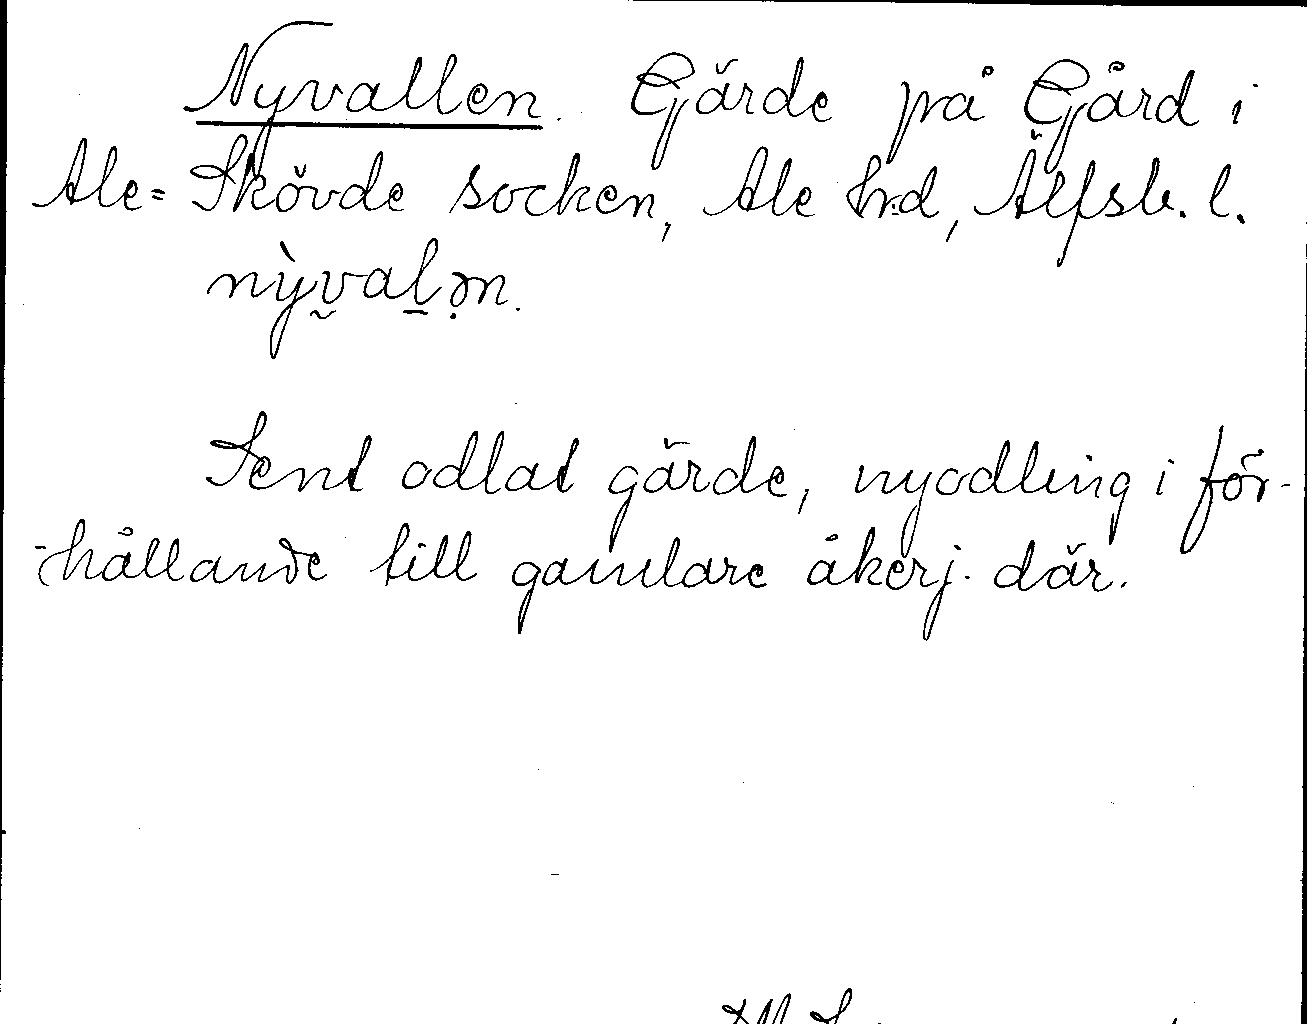 Nyvallen. Gärde på Gård i
Ale=Skövde socken, Ale h:d, Älfsb. l.
nỳv̰aḻə̣n.
Sent odlat gärde, nyodling i för-
-hållande till gamlare åkerj. där.